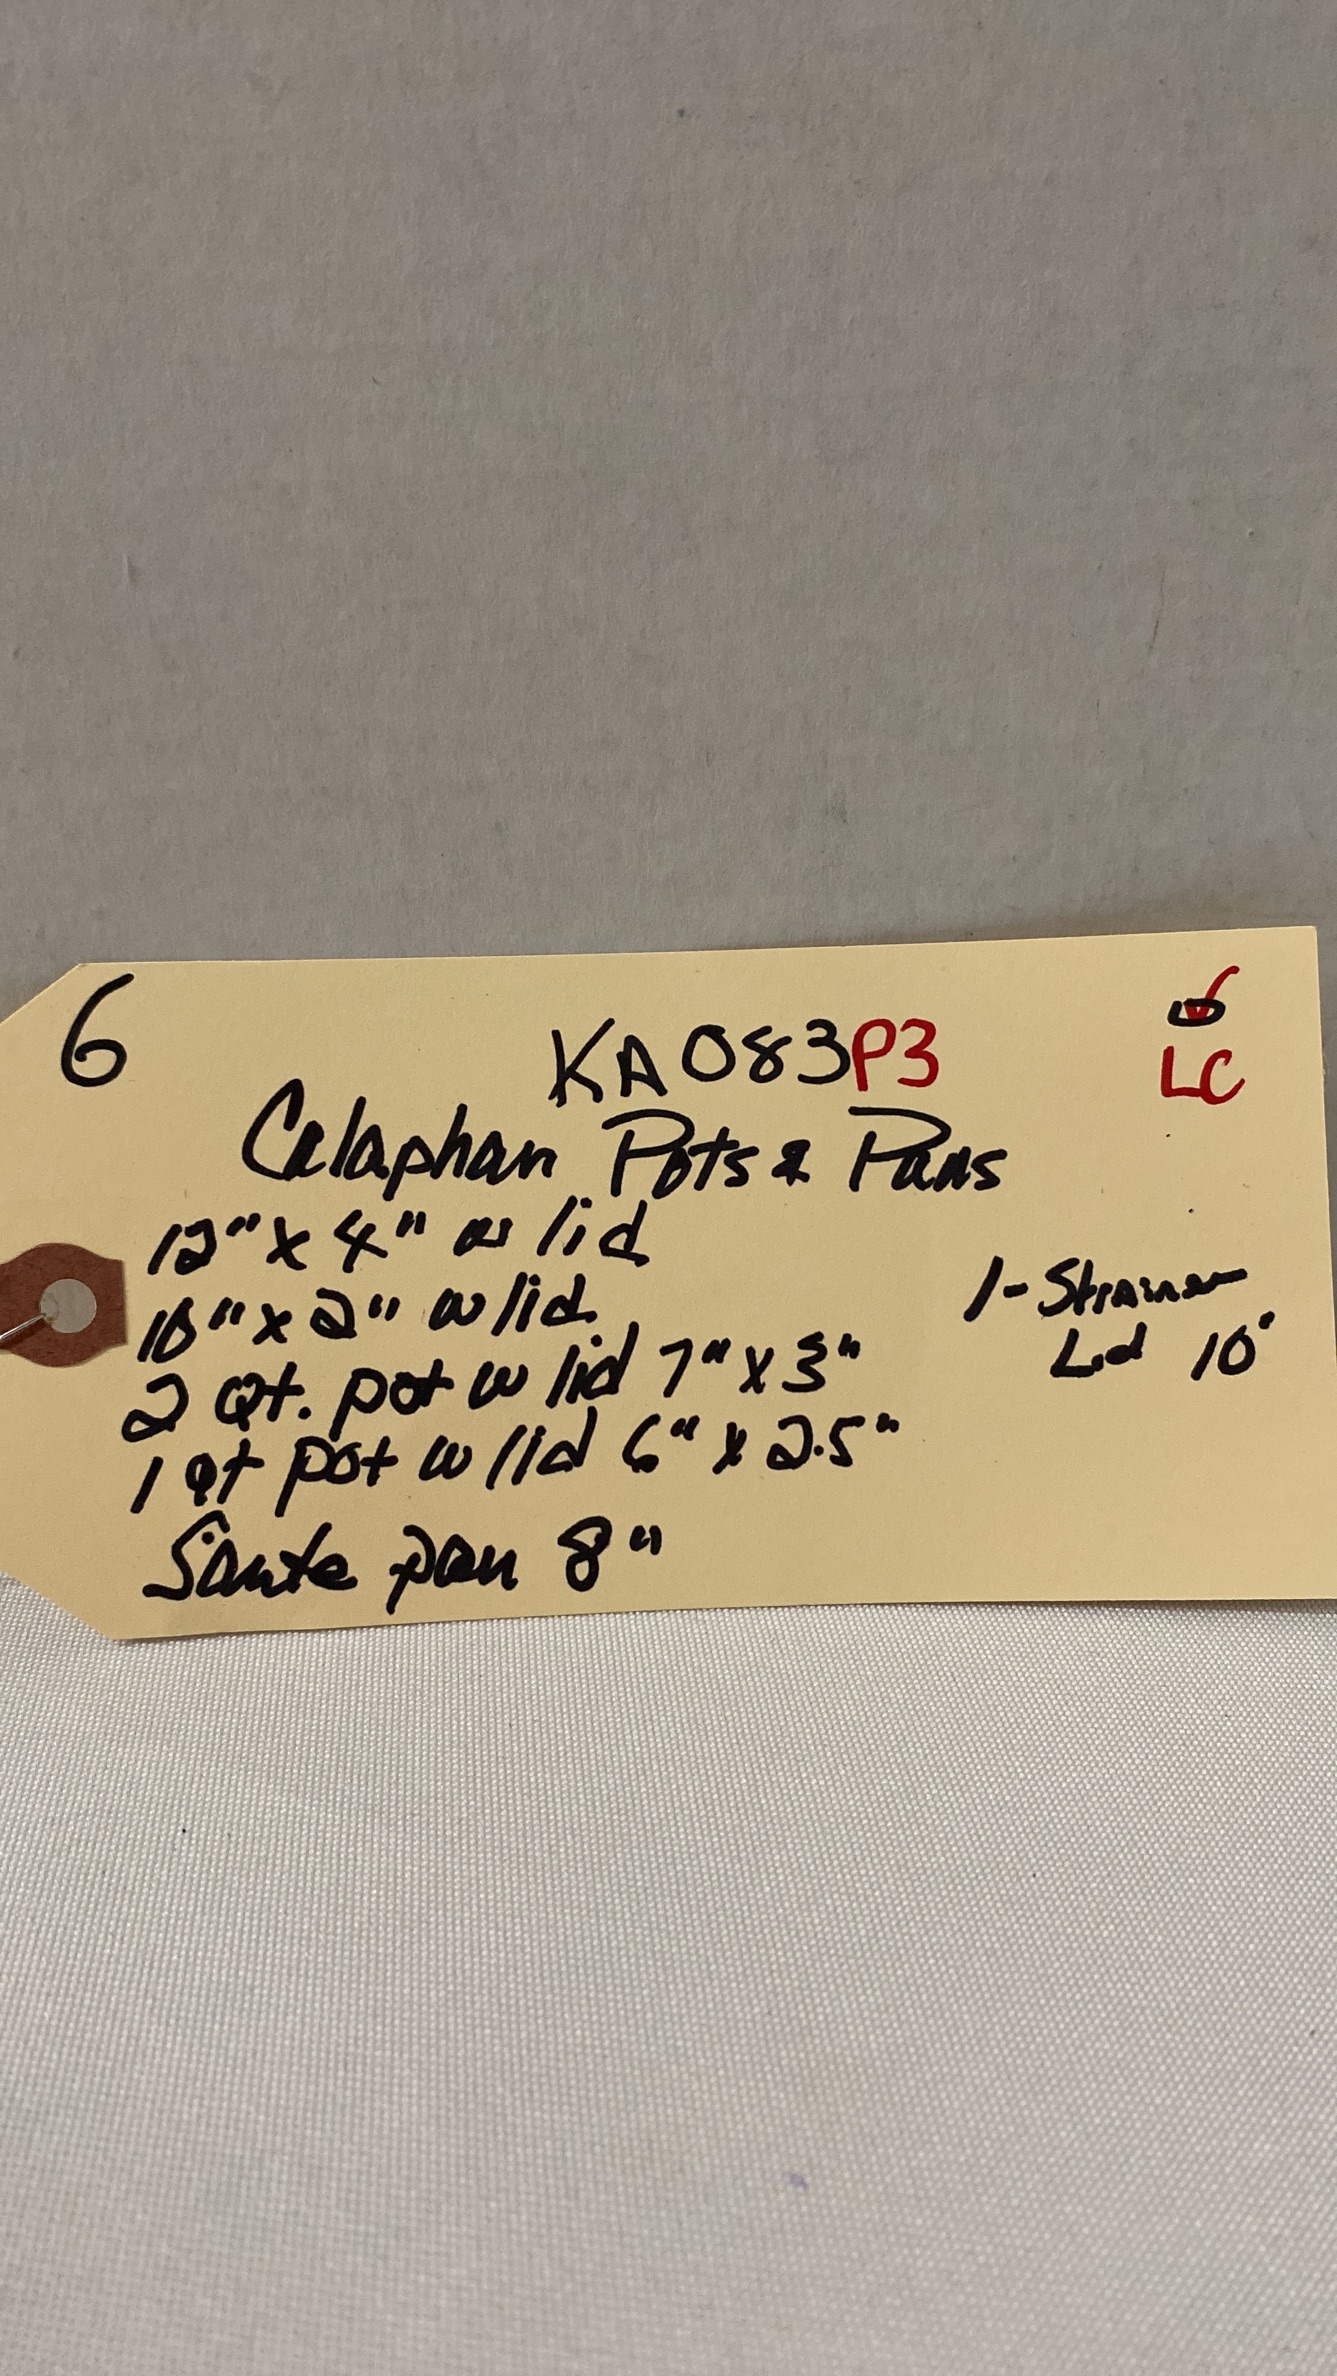 6
KA083P3
LC
Calaphan Pots & Pans
12" x 4" w lid
10" x 2" w lid
2 Qt. pot w lid 7" x 3"
1 Qt pot w lid 6" x 2.5"
Saute pan 8"
1- Strainer
Lid 10"